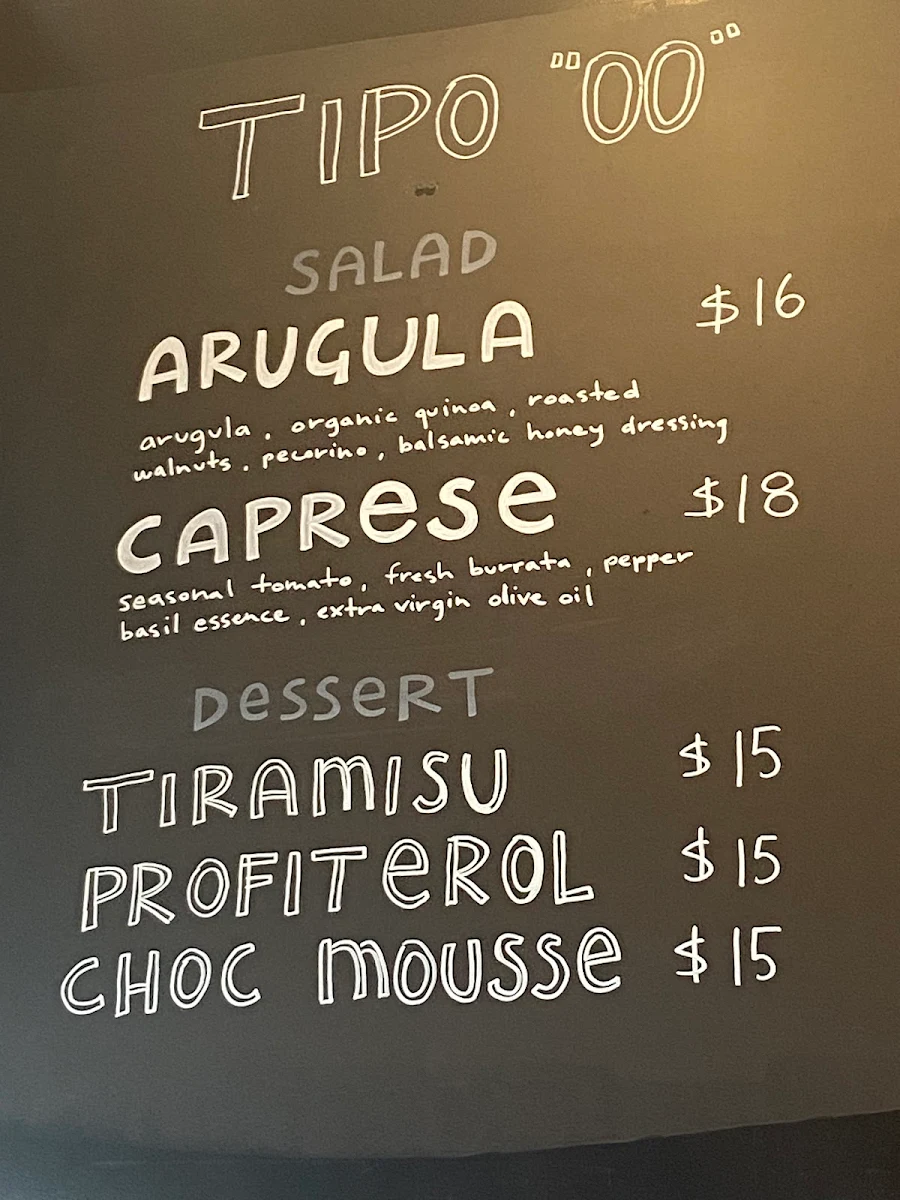 TIPO "00"
SALAD
ARUGULA $16
arugula, organic quinoa, roasted
walnuts, pecorino, balsamic honey dressing
CAPRese $18
seasonal tomato, fresh burrata, pepper
basil essence, extra virgin olive oil
DesseRT
TIRAmISU $15
PROFITeROL $15
CHOC mOUSSe $15